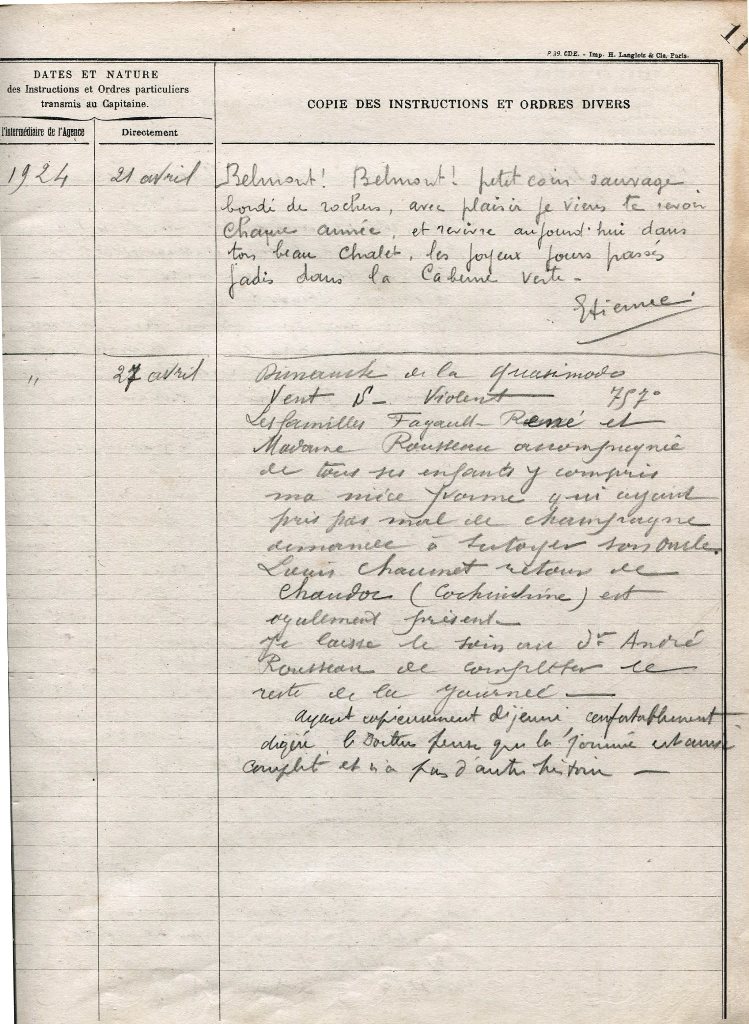 11
P 39. CDE. - Imp. H. Langlois & Cie, Paris.
DATES ET NATURE
des Instructions et Ordres particuliers
transmis au Capitaine.
l'intermédiaire de l'Agence
Directement
COPIE DES INSTRUCTIONS ET ORDRES DIVERS
1924 21 avril
Belmont! Belmont! petit coin sauvage
bordé de rochers, avec plaisir je viens te revoir
chaque année, et revivre aujourd'hui dans
ton beau chalet, les joyeux jours passés
jadis dans la Cabane verte -
Etienne.
" 27 avril
Dimanche de la Quasimodo
Vent S- Violent 757°
Les familles Fayault- René et
Madame Rousseau accompagnée
de tous ses enfants y compris
ma nièce Yvonne qui ayant
pris pas mal de champagne
demande à tutoyer son oncle.
Louis Chaumet retour de
Chaudoc (Cochinchine) est
également présent-
Je laisse le soin au Dr André
Rousseau de compléter le
reste de la journée —
ayant copieusement déjeuné confortablement
digéré, le Docteur pense que la journée est ainsi
complète et n'a pas d'autre histoire —